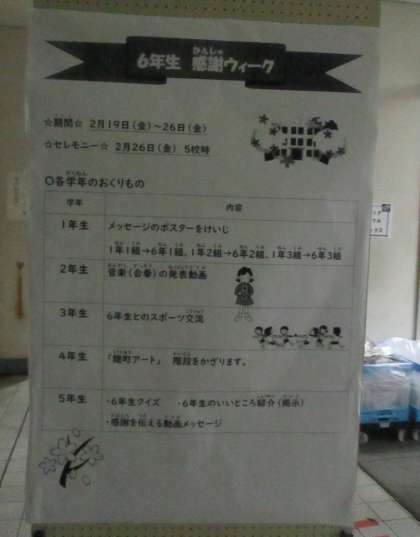 6年生 感謝ウィーク
☆期間☆ 2月19日(金)～26日(金)
☆セレモニー☆ 2月26日(金) 5校時
○各学年のおくりもの
学年 内容
1年生 メッセージのポスターをけいじ
1年1組→6年1組、1年2組→6年2組、1年3組→6年3組
2年生 音楽(合奏)の発表動画
3年生 6年生とのスポーツ交流
4年生 「麹町アート」 階段をかざります。
5年生 ・6年生クイズ ・6年生のいいところ紹介(掲示)
・感謝を伝える動画メッセージ